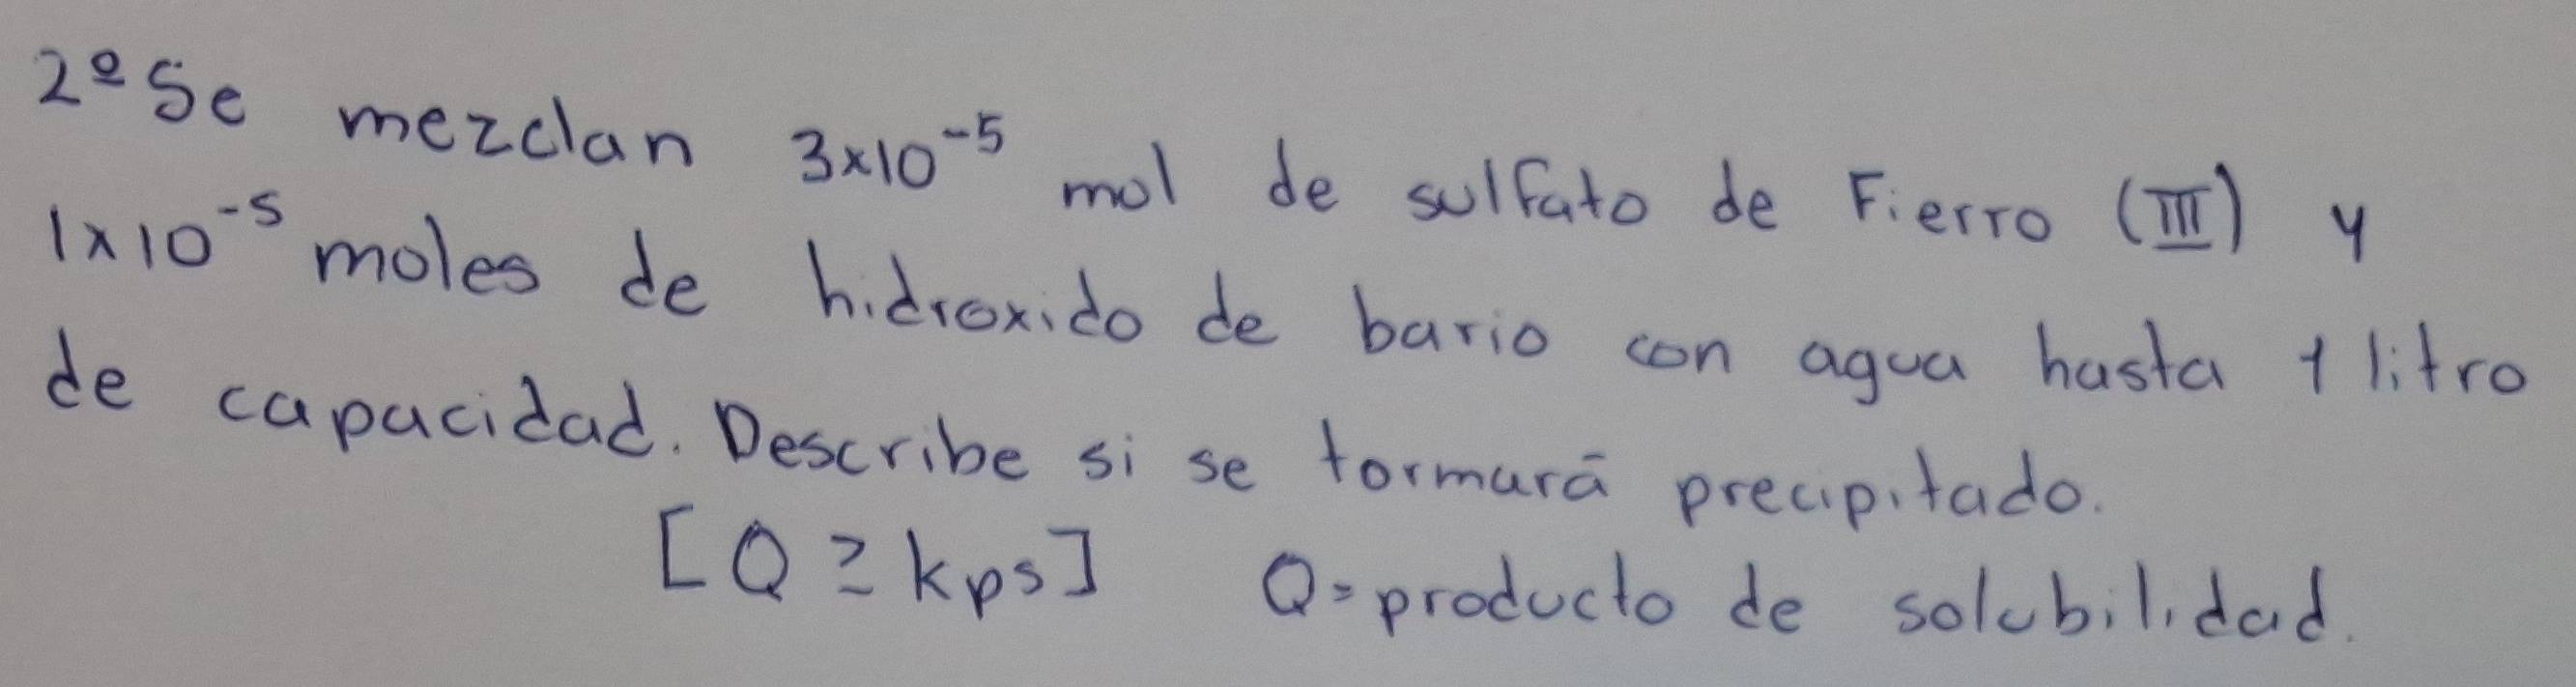 2º Se mezclan 3x10⁻⁵ mol de sulfato de Fierro (III) y
1x10⁻⁵ moles de hidroxido de bario con agua hasta 1 litro
de capacidad. Describe si se formará precipitado.
[Q ≥ kps] Q=producto de solubilidad.